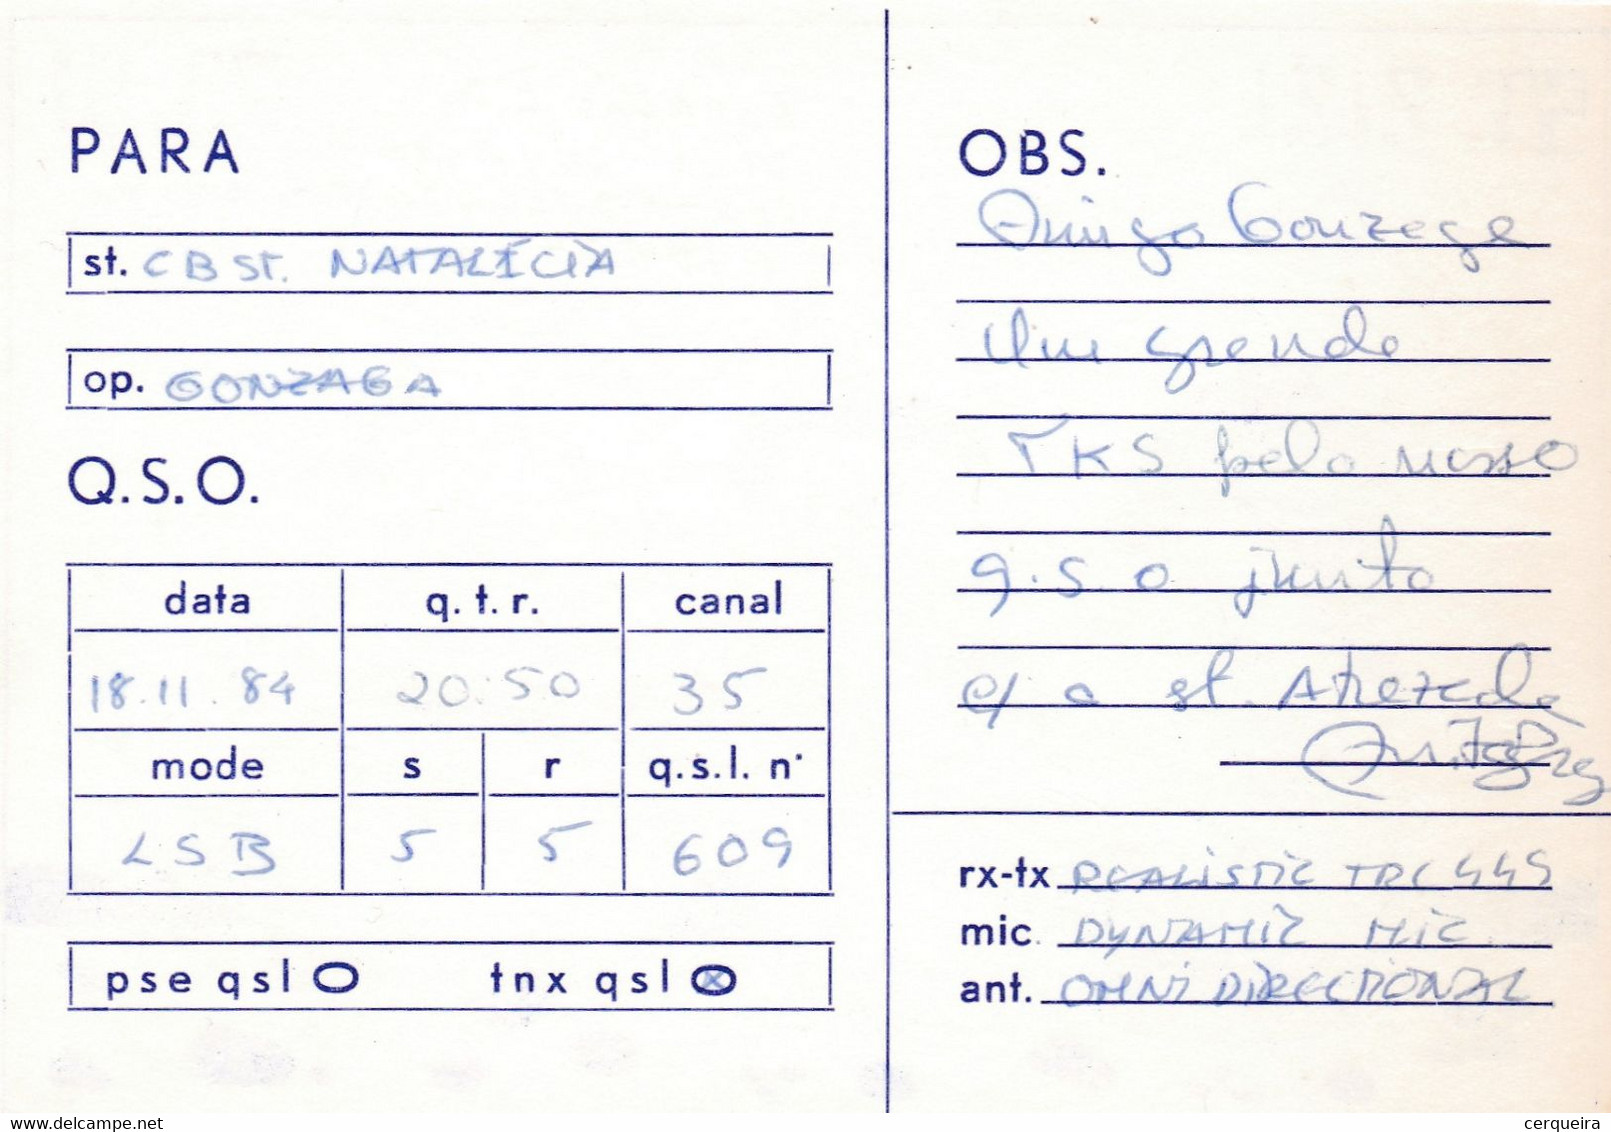 PARA
st. CB ST. NATALÍCIA
op. GONZAGA
Q.S.O.
data q.t.r. canal
18.11.84 20:50 35
mode s r q.s.l. n·
LSB 5 5 609
pse qsl O tnx qsl O x
OBS.
Amigo Gonzaga
Um grande
TKS pelo nosso
q.s.o junto
c/ a st.
rx-tx REALISTIC TRC 449
mic. DYNAMIC MIC
ant. OMNI DIRECTIONAL
www.delcampe.net
cerqueira